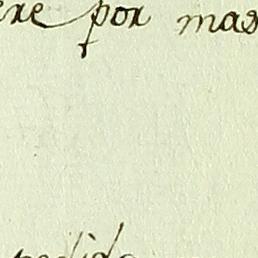 por mas
pedido